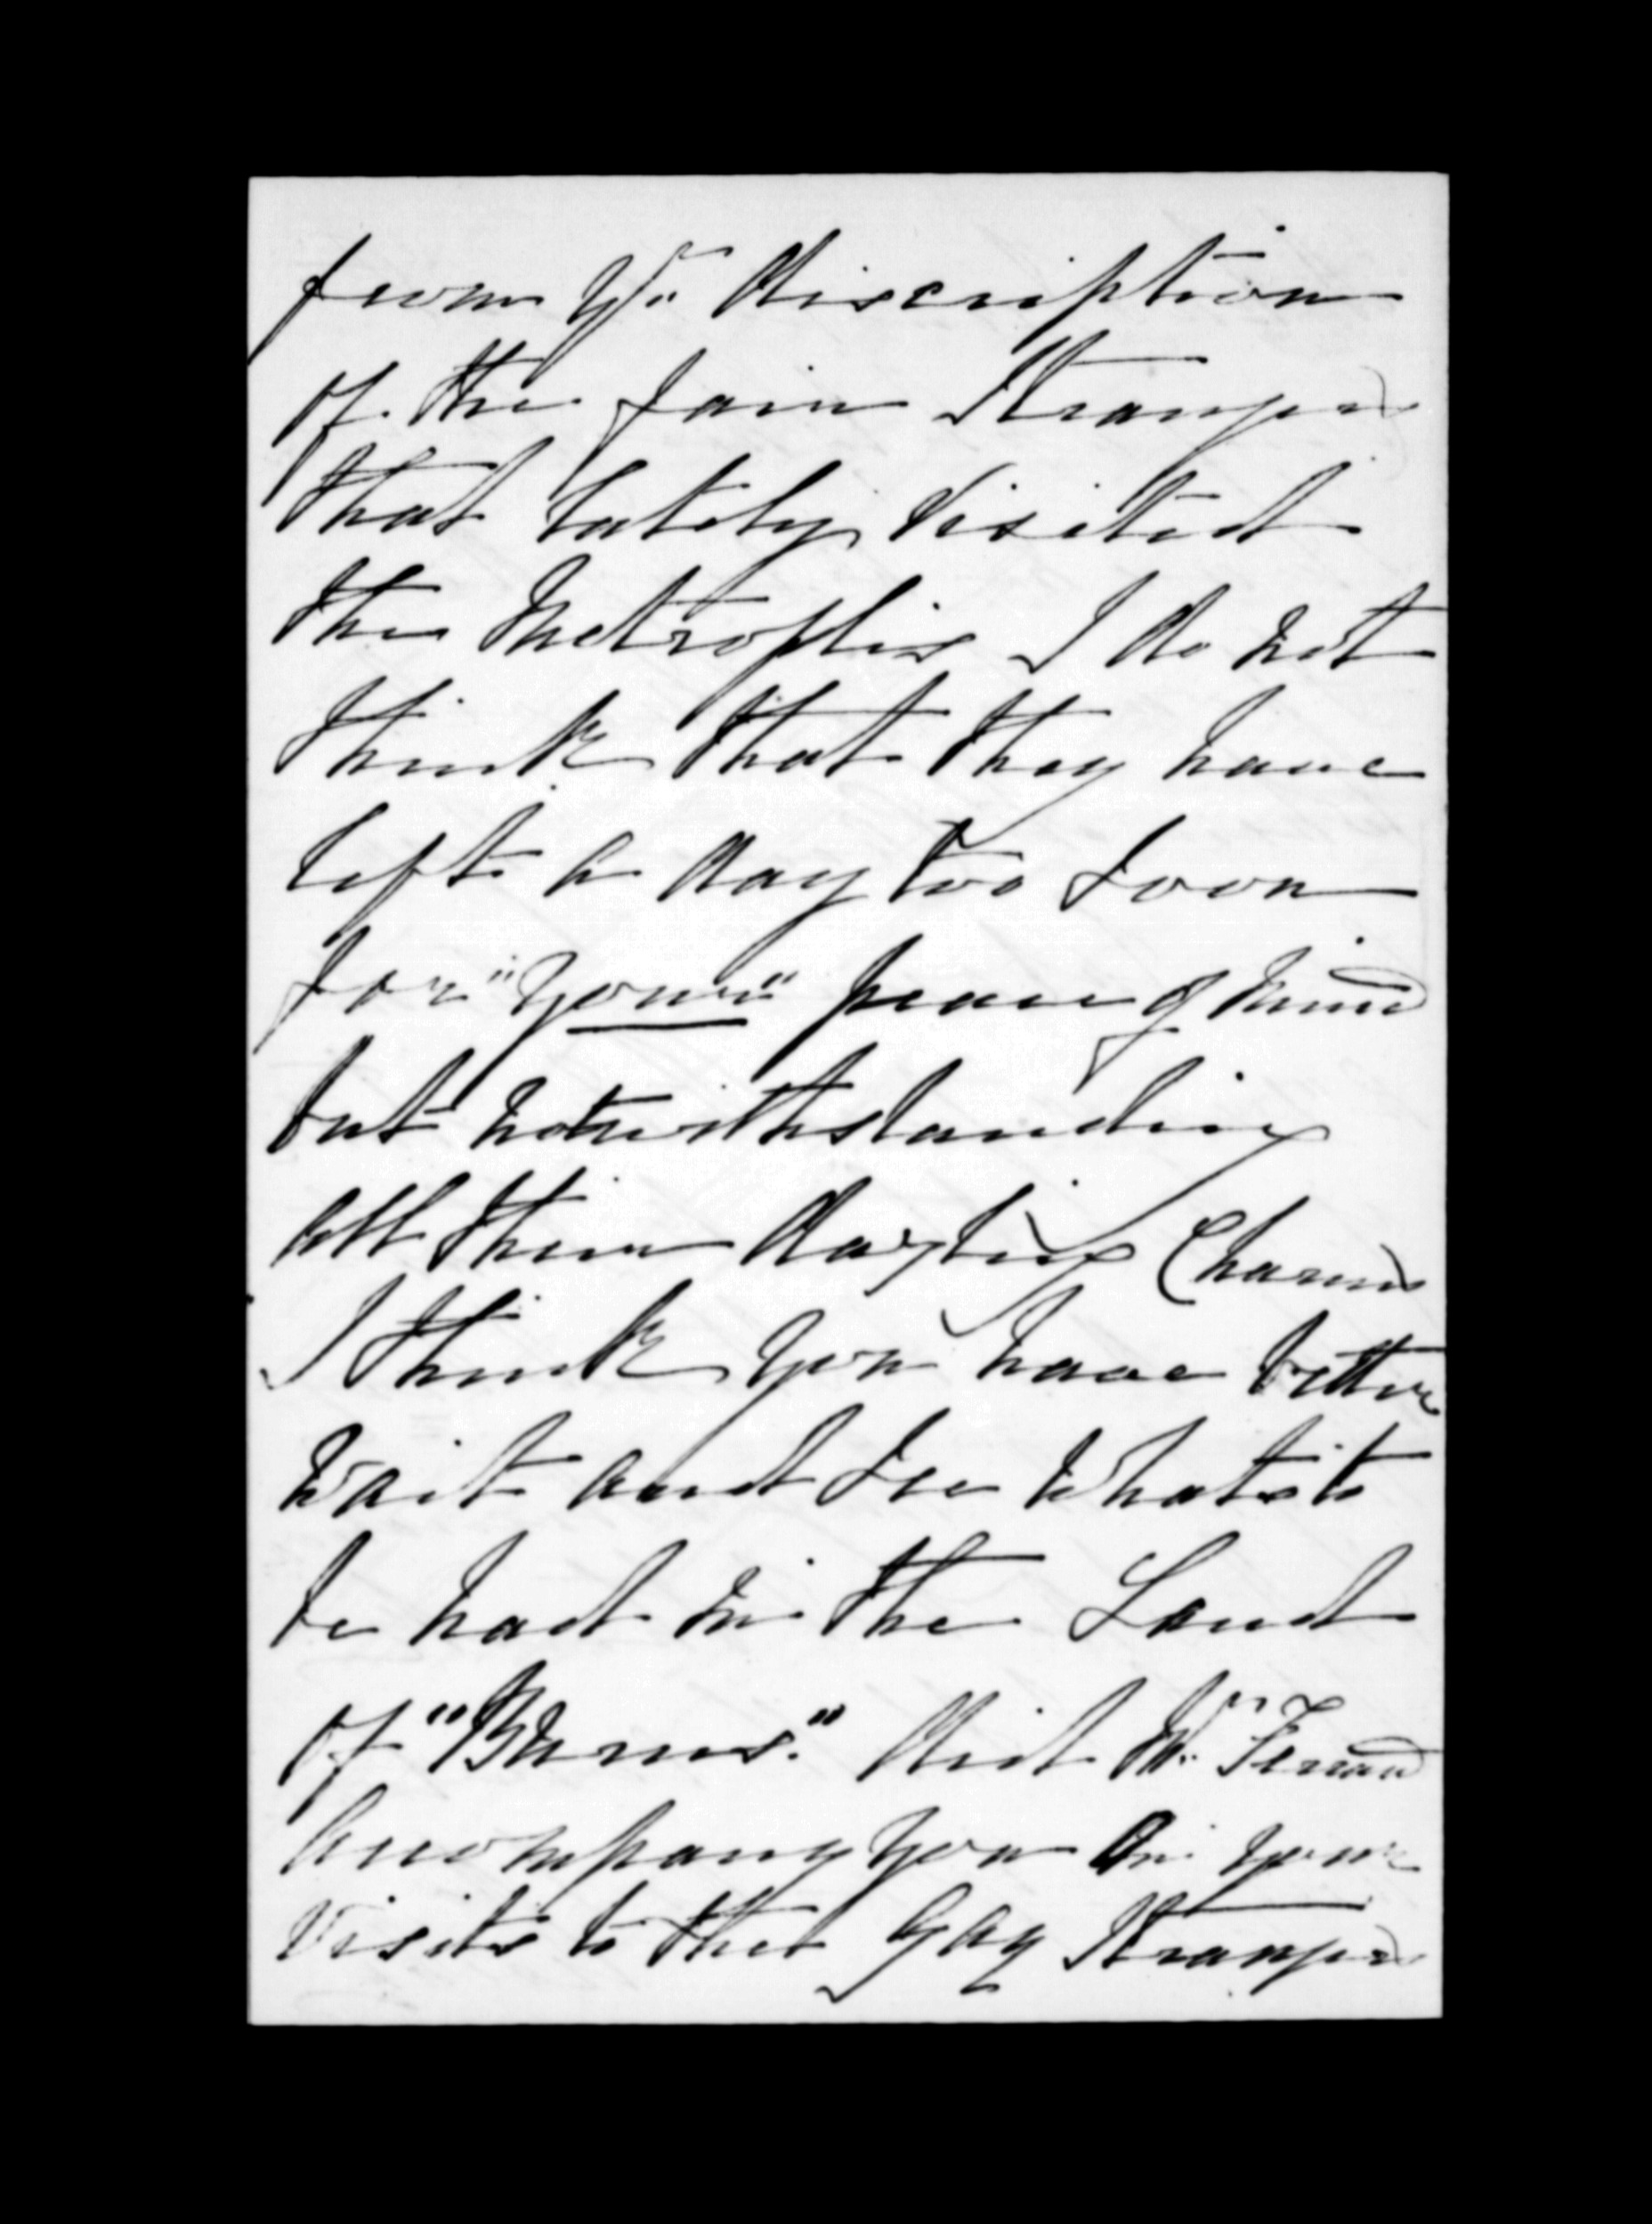 from yr discription
of the fair Strangers
that lately visited
the Metroplis I do not
think that they have
left a day too soon
for "your" peace of mind
but notwithstanding
all their dazling Charms
I think you have better
wait and see what is to
be had in the Land
of "Burns." did Mr Ferrand
accompany you in your
visits to the gay Strangers